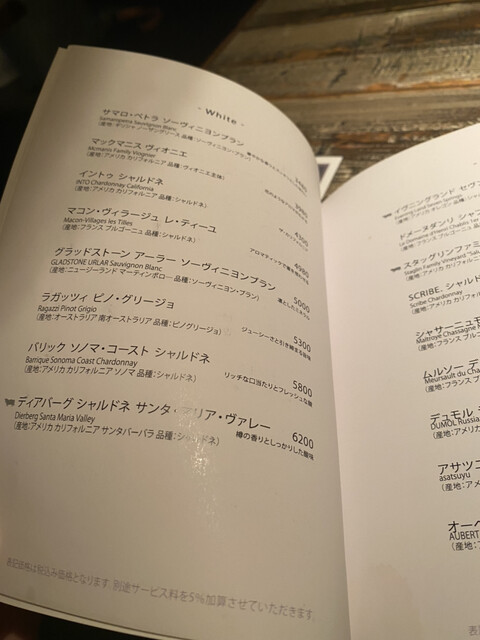 - White -
サマロ・ペトラ ソーヴィニヨンブラン
Samaropetra Sauvignon Blanc
マックマニス ヴィオニエ
Mcmanis Family Viognier
(産地:アメリカ カリフォルニア 品種:ヴィオニエ主体)
イントゥ シャルドネ
INTO Chardonnay California
(産地:アメリカ カリフォルニア 品種:シャルドネ)
4300
マコン・ヴィラージュ レ・ティーユ
Macon-Villages les Tilles
(産地:フランス ブルゴーニュ 品種:シャルドネ)
4980
グラッドストーン アーラー ソーヴィニヨンブラン
GLADSTONE URLAR Sauvignon Blanc
(産地:ニュージーランド マーティンボロー 品種:ソーヴィニヨン・ブラン)
5000
ラガッツィ ピノ・グリージョ
Ragazzi Pinot Grigio
(産地:オーストラリア 南オーストラリア 品種:ピノグリージョ)
5300
ジューシーさと引き締まる旨味
バリック ソノマ・コースト シャルドネ
Barrique Sonoma Coast Chardonnay
(産地:アメリカ カリフォルニア ソノマ 品種:シャルドネ)
5800
リッチな口当たりとフレッシュな酸
ディアバーグ シャルドネ サンタ・マリア・ヴァレー
Dierberg Santa Maria Valley
(産地:アメリカ カリフォルニア サンタバーバラ 品種:シャルドネ)
6200
樽の香りとしっかりした酸味
表記価格は税込み価格となります。別途サービス料を5%加算させていただきます。
イヴニングランド セヴ
ドメーヌダンリ シャブ
スタッグリンファミ
SCRIBE. シャルド
Scribe Chardonnay
(産地:アメリカ カリフ
シャサーニュモ
(産地:フランス ブル
ムルソー デ
Meursault du Cha
(産地:フランス
デュモル シ
DUMOL Russia
(産地:アメ
アサツユ
asatsuyu
(産地:アメ
オーベ
AUBERT
(産地:ア
表